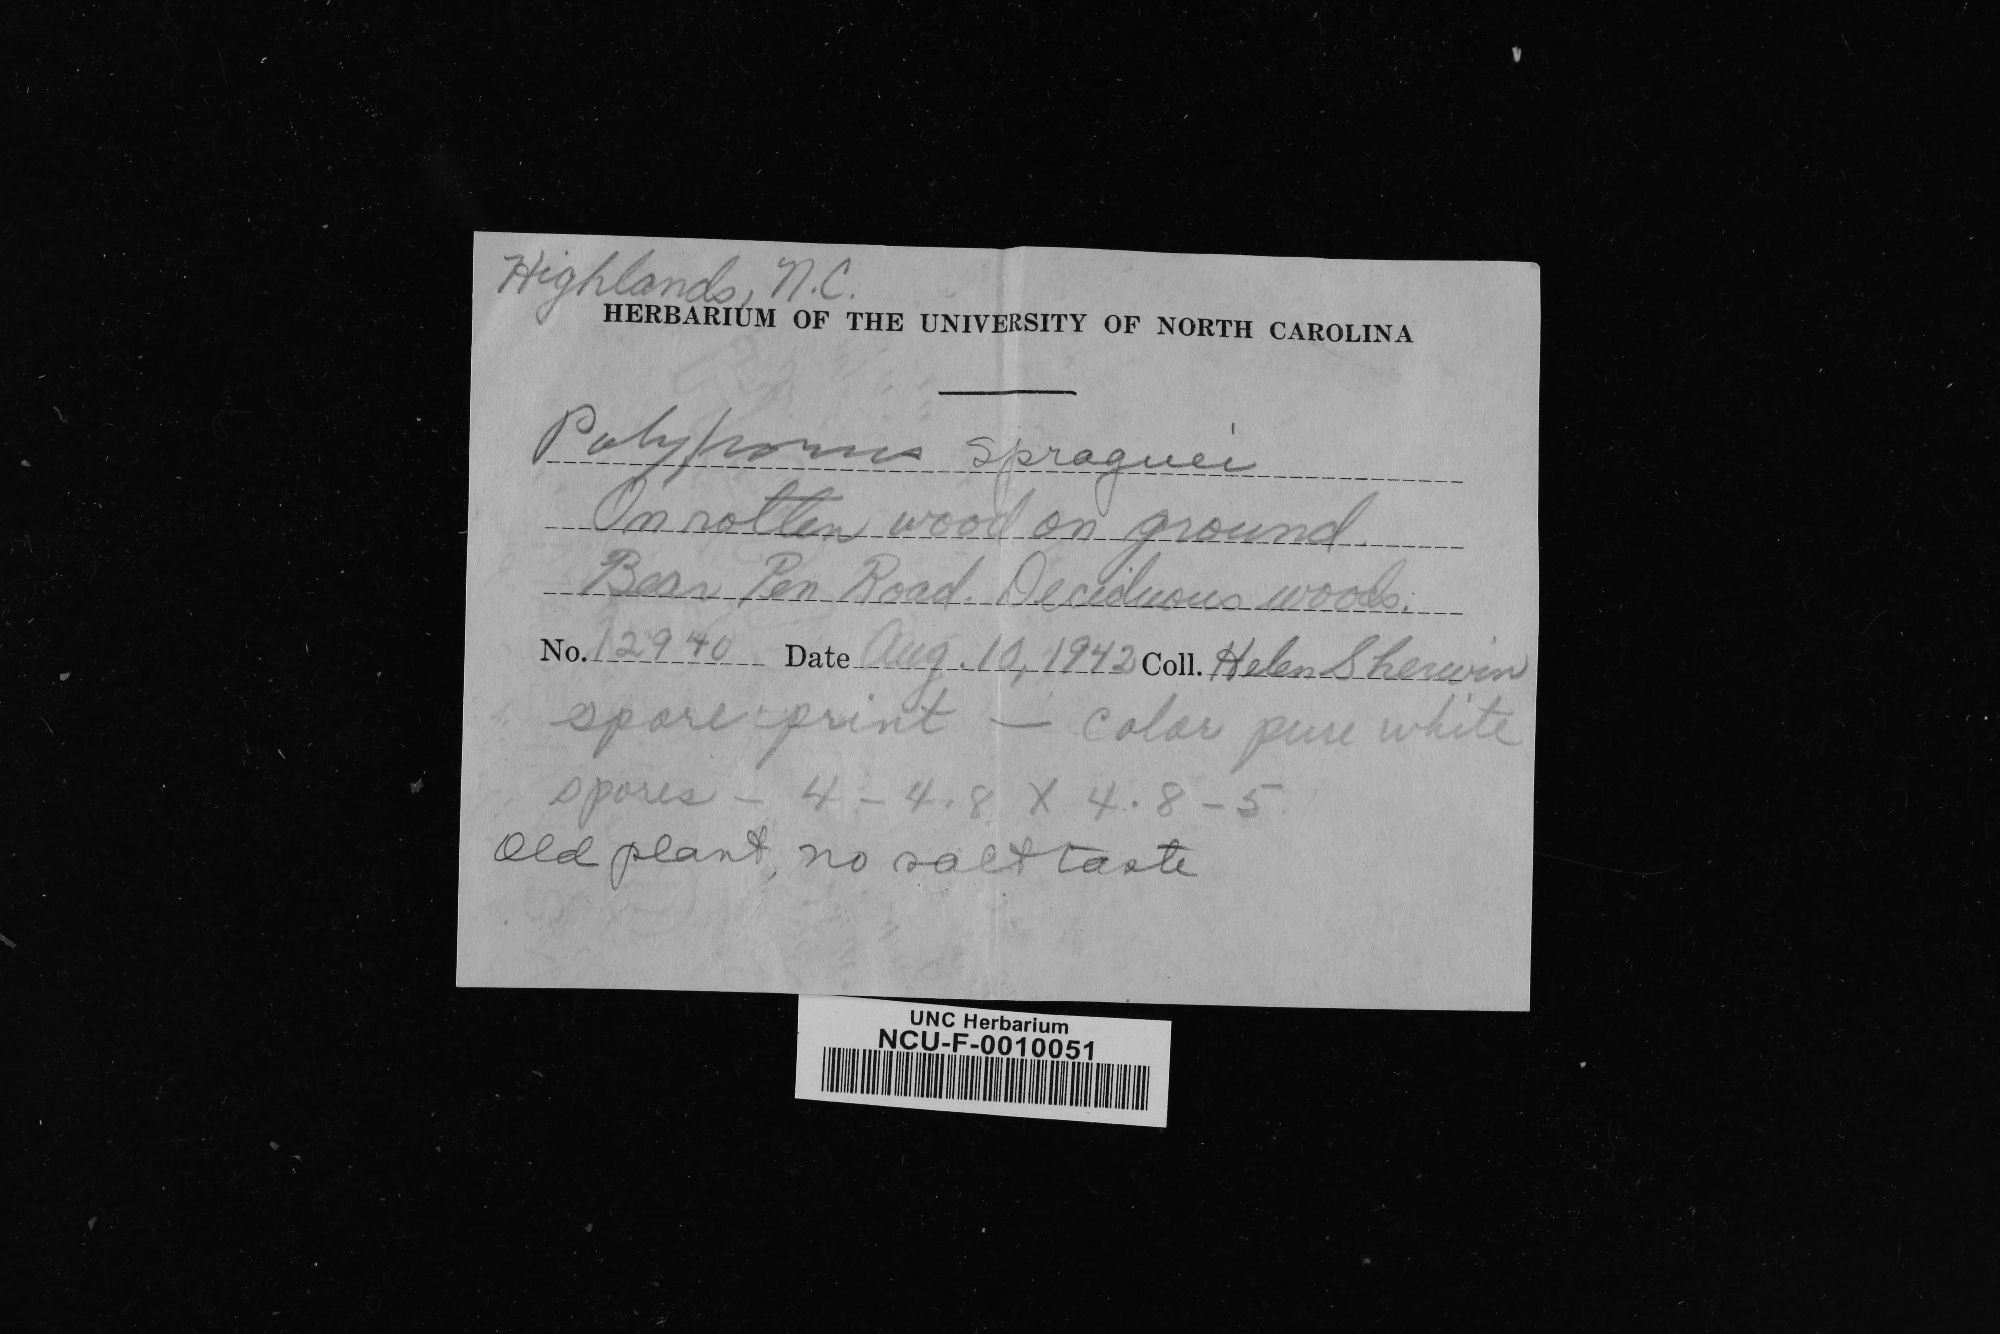 Highlands, N.C.
HERBARIUM OF THE UNIVERSITY OF NORTH CAROLINA
Polyporus Spraguei
On rotten wood on ground.
Bear Pen Road. Deciduous woods.
No. 12940 Date Aug. 10, 1942 Coll. Helen Sherwin
spore-print — color pure white
spores — 4 - 4.8 X 4.8 - 5
Old plant, no salt taste
UNC Herbarium
NCU-F-0010051